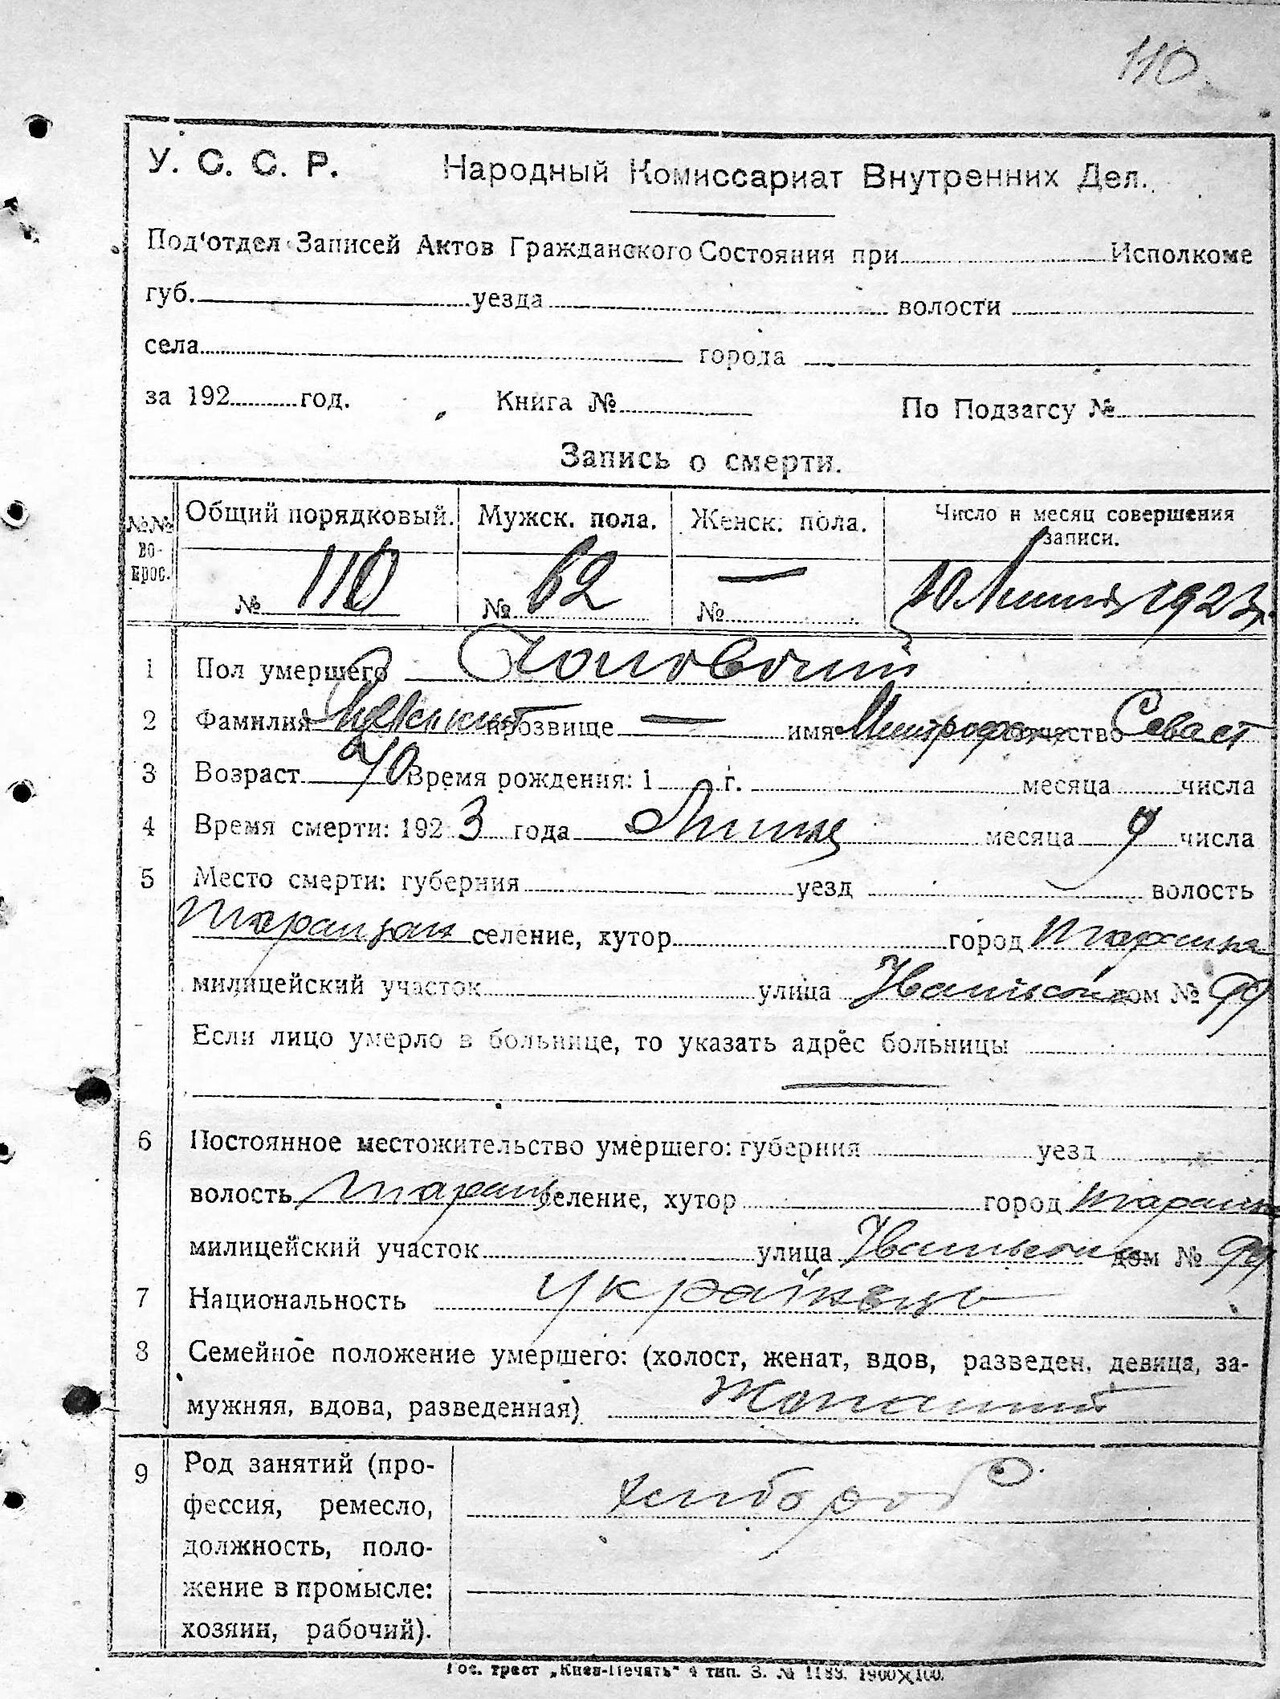 110
У. С. С. Р. Народный Комиссариат Внутренних Дел.
Под'отдел Записей Актов Гражданского Состояния при Исполкоме
губ. уезда волости
села города
за 192 год. Книга № По Подзагсу №
Запись о смерти.
№№ во-прос. Общий порядковый. Мужск. пола. Женск. пола. Число и месяц совершения записи.
№ 110 № 62 № — 10 Липня 1923 р.
1 Пол умершего Чоловічий
2 Фамилия прозвище — имя Митрофан отчество Севаст
3 Возраст 70 Время рождения: 1 г. месяца числа
4 Время смерти: 1923 года Липня месяца 9 числа
5 Место смерти: губерния уезд волость
Таращан селение, хутор город Тараща
милицейский участок улица дом № 99
Если лицо умерло в больнице, то указать адрес больницы
—
6 Постоянное местожительство умершего: губерния уезд
волость Таращ селение, хутор город Тараща
милицейский участок улица дом № 99
7 Национальность Українець
8 Семейное положение умершего: (холост, женат, вдов, разведен. девица, за-
мужняя, вдова, разведенная) Жонатий
9 Род занятий (про-
фессия, ремесло, хлібороб
должность, поло-
жение в промысле:
хозяин, рабочий).
Гос. трест „Киев-Печать" 4 тип. З. № 1183. 1900×100.